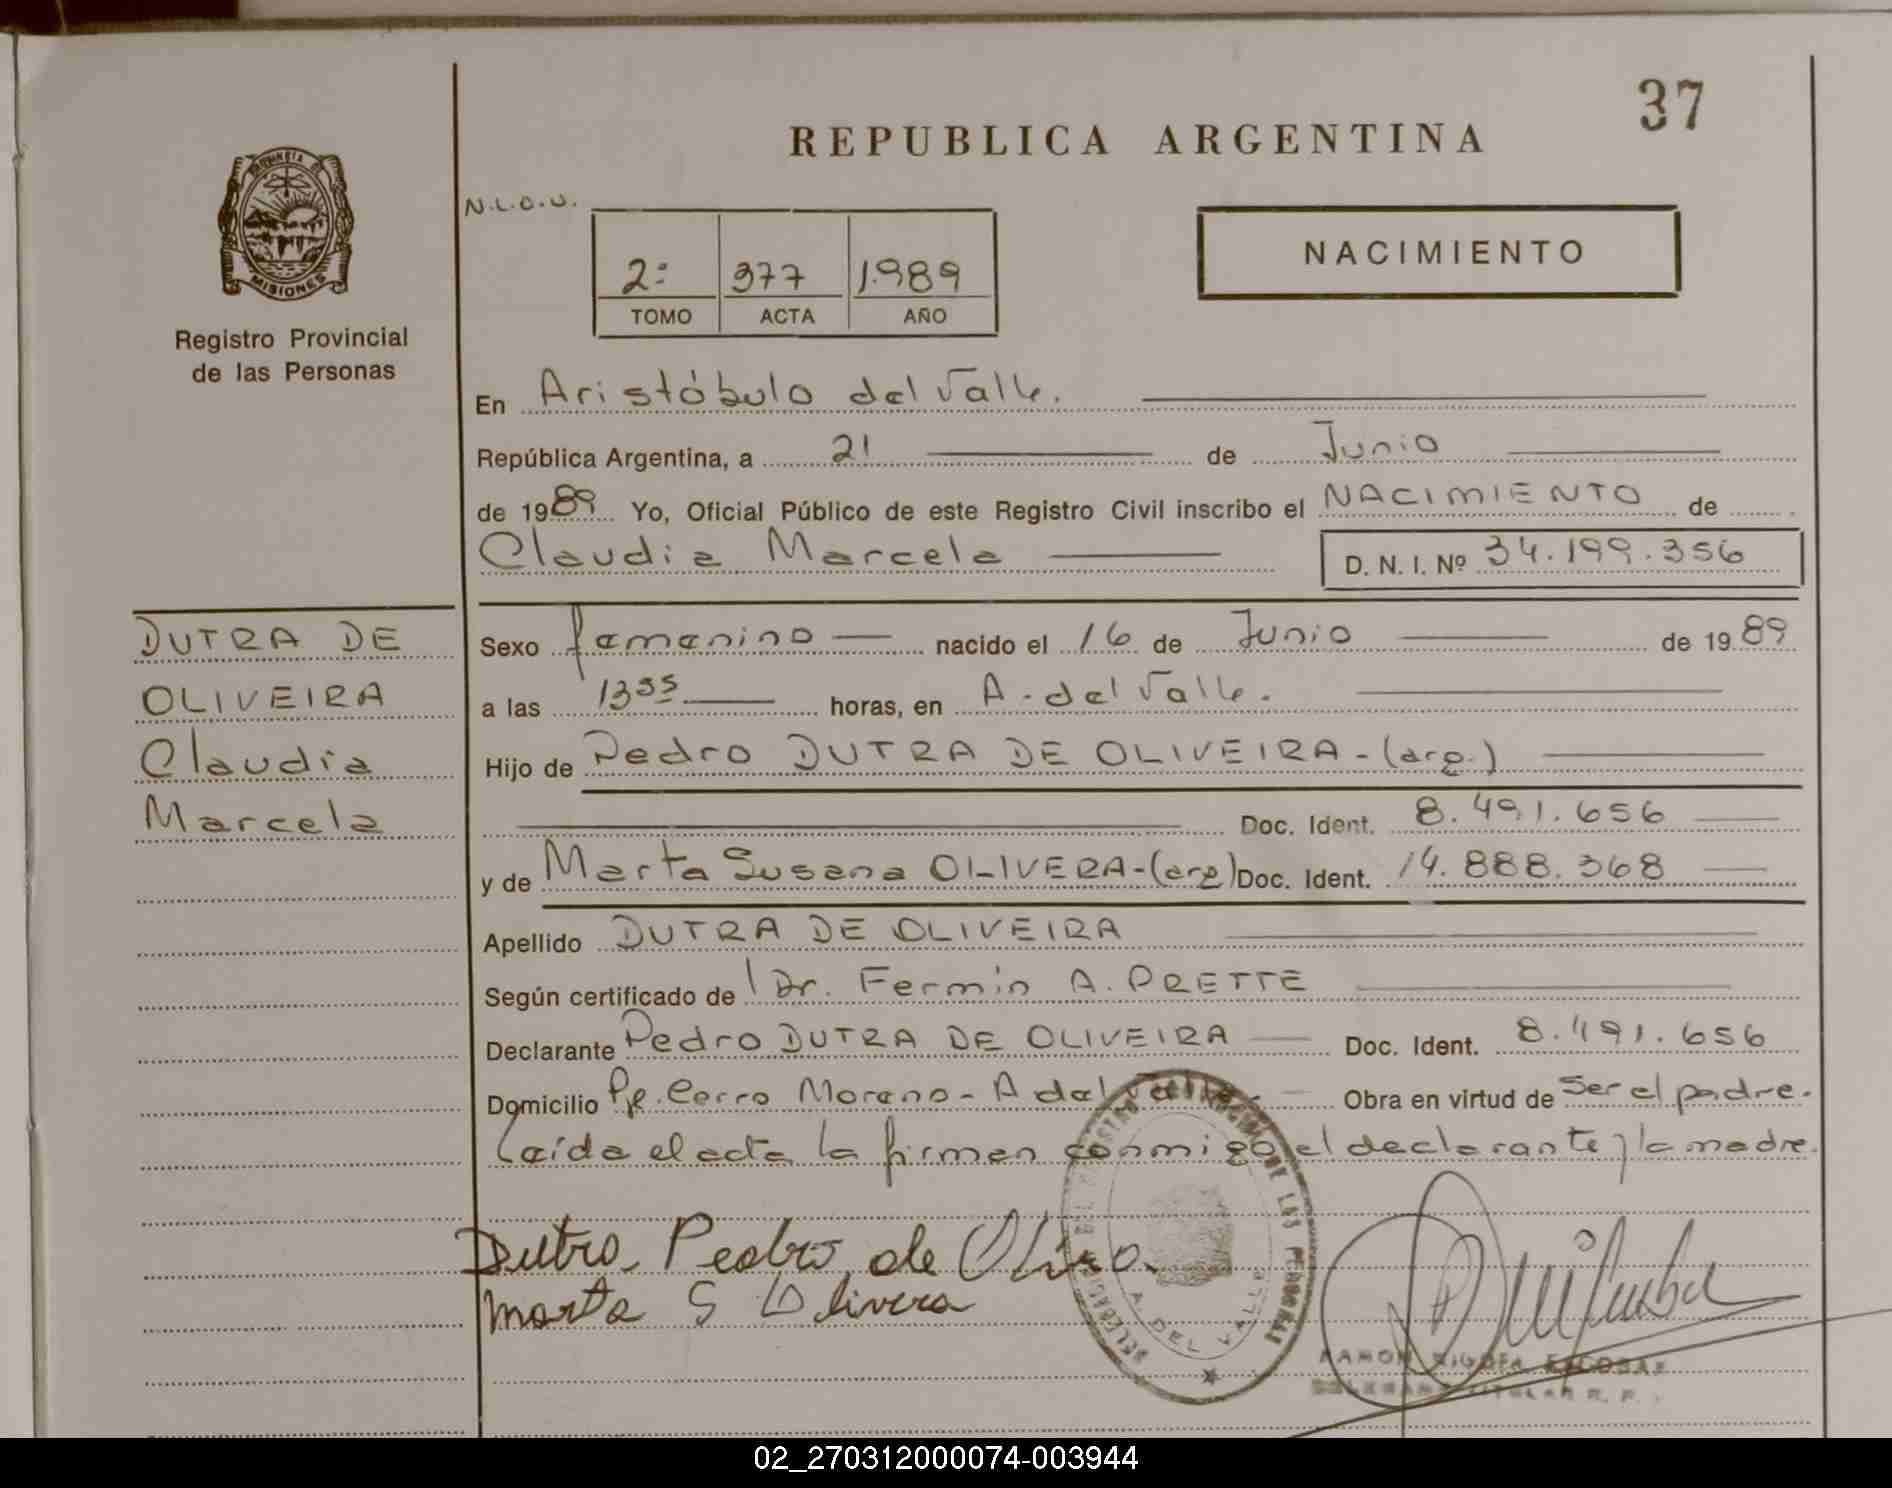 37
REPUBLICA ARGENTINA
PROVINCIA DE
MISIONES
Registro Provincial
de las Personas
N.L.O.U.
2º 377 1.989
TOMO ACTA AÑO
NACIMIENTO
En Aristóbulo del Valle.
República Argentina, a 21 de Junio
de 1989 Yo, Oficial Público de este Registro Civil inscribo el NACIMIENTO de
Claudia Marcela D. N. I. Nº 34.199.356
DUTRA DE
OLIVEIRA
Claudia
Marcela
Sexo femenino nacido el 16 de Junio de 1989
a las 13 35 horas, en A. del Valle.
Hijo de Pedro DUTRA DE OLIVEIRA - (arg.)
Doc. Ident. 8.491.656
y de Marta Susana OLIVERA - (arg) Doc. Ident. 14.888.368
Apellido DUTRA DE OLIVEIRA
Según certificado de Dr. Fermín A. PRETTE
Declarante Pedro DUTRA DE OLIVEIRA Doc. Ident. 8.491.656
Domicilio Pje. Cerro Moreno - A del Valle. Obra en virtud de Ser el padre.
Leída el acta la firman conmigo el declarante y la madre.
Dutra Pedro de
Marta S Olivera
DELEGACION DEL REGISTRO PROVINCIAL DE LAS PERSONAS
A. DEL VALLE
RAMON ESCOBAR
TITULAR R. P.
02_270312000074-003944